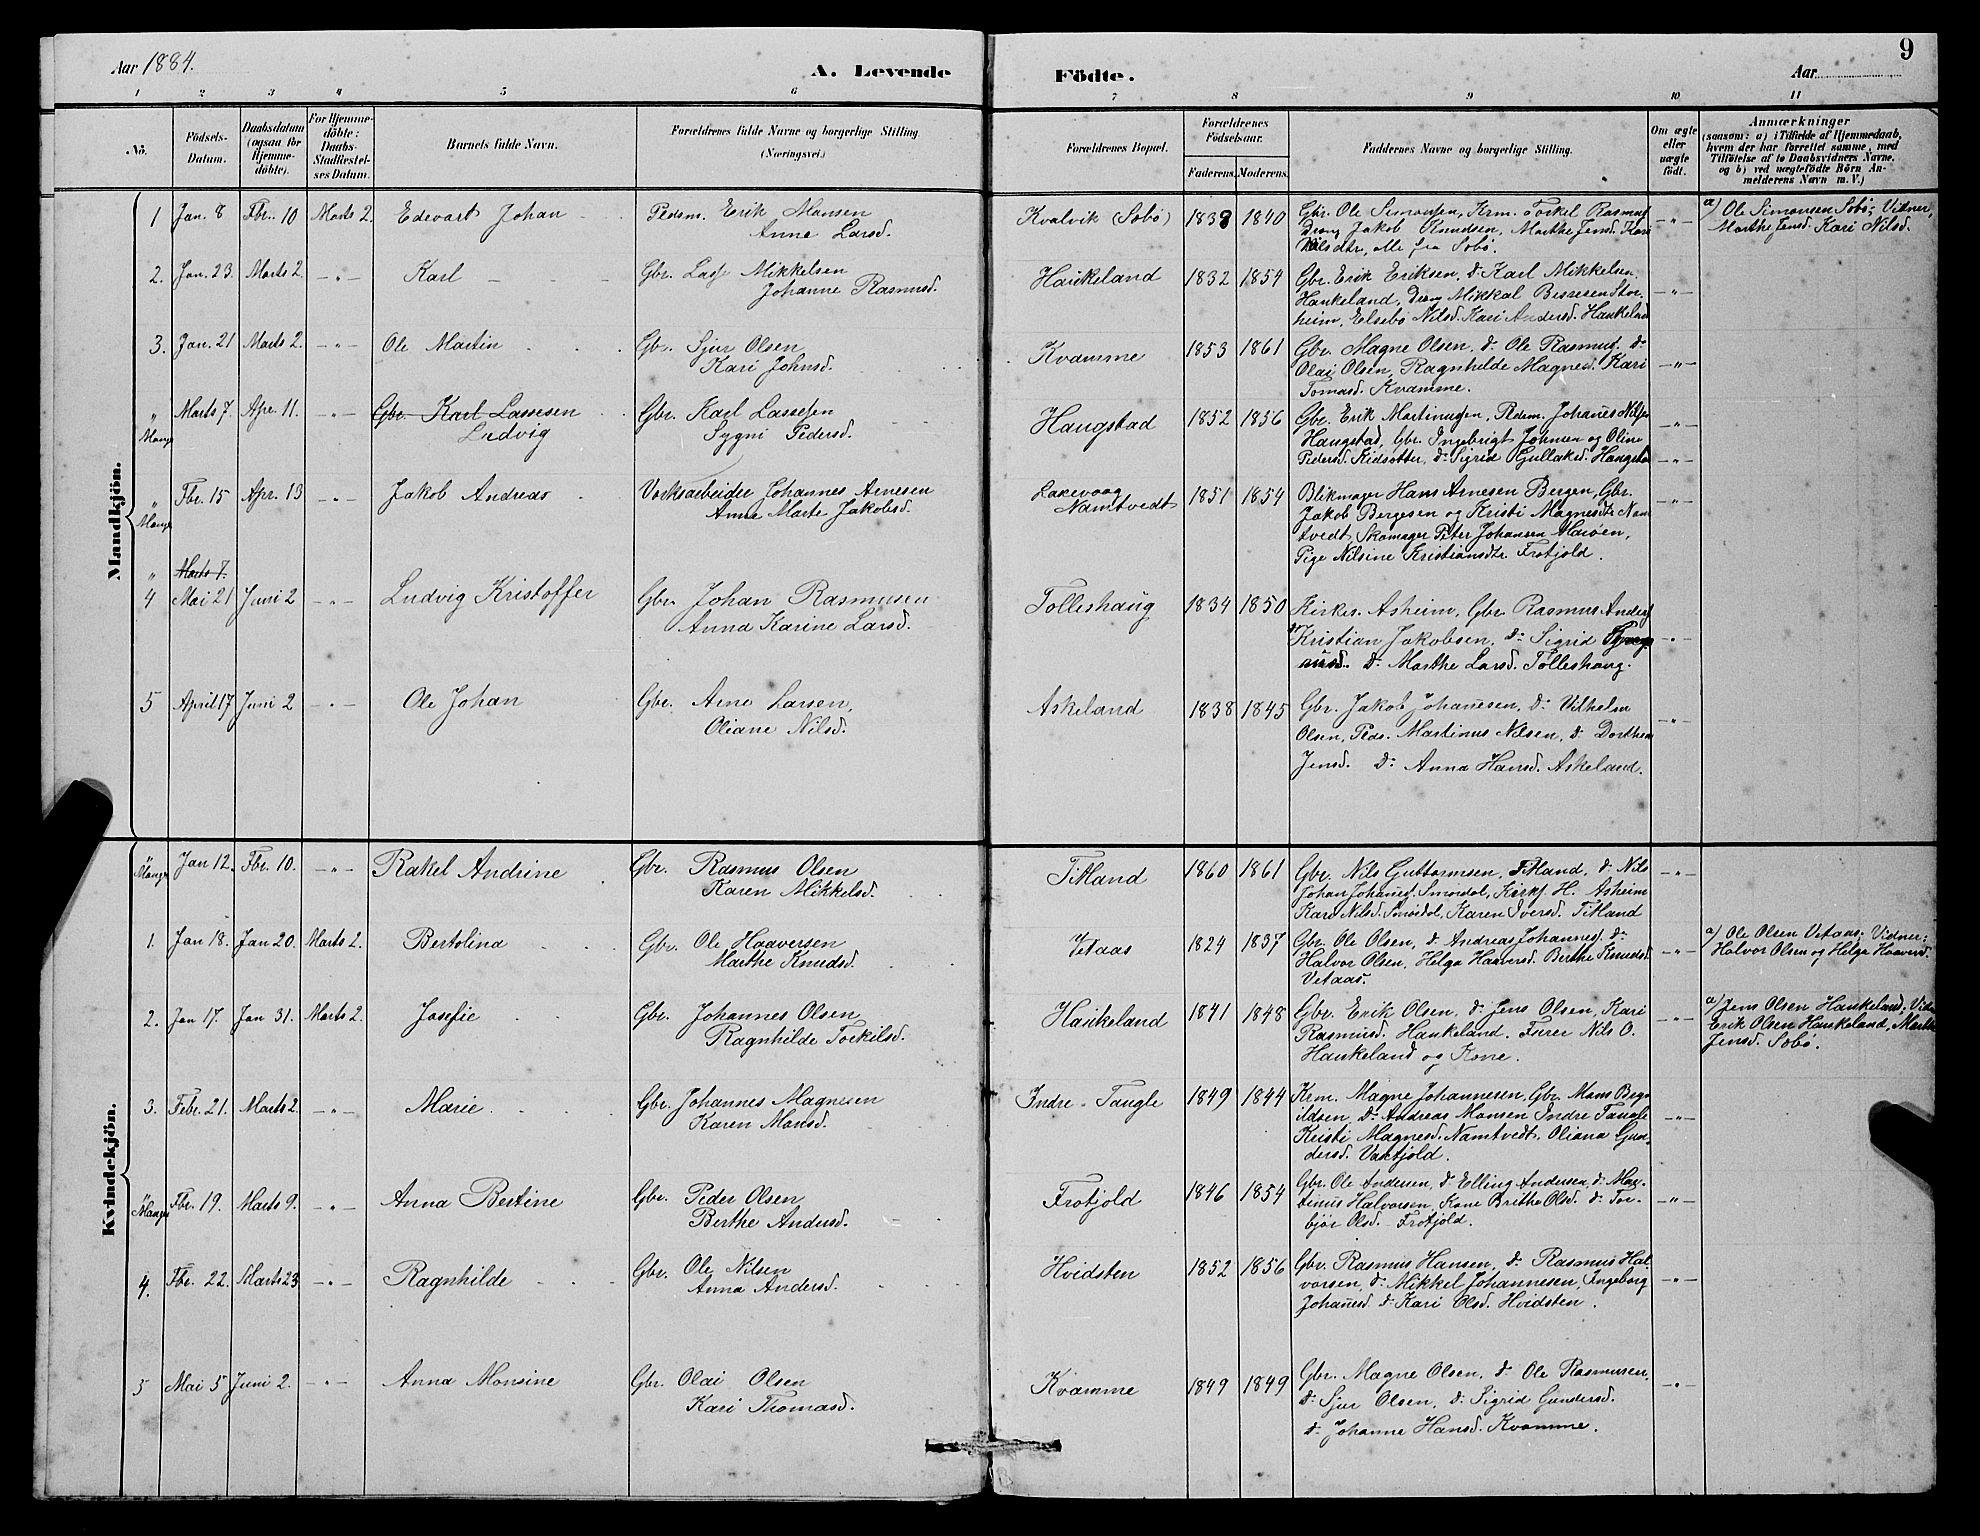 Aar 1884.
A. Levende Födte.
Aar
9
1 2 3 4 5 6 7 8 9 10 11
No.
Födsels-Datum.
Daabsdatum (ogsaa for Hjemme-döbte).
For Hjemme-döbte: Daabs-Stadfæstel-ses Datum.
Barnets fulde Navn.
Forældrenes fulde Navne og borgerlige Stilling. (Næringsvei.)
Forældrenes Bopæl.
Forældrenes Födselsaar.
Faderens. Moderens.
Faddernes Navne og borgerlige Stilling.
Om ægte eller uægte födt.
Anmærkninger
(saasom: a) i Tilfælde af Hjemmedaab,
hvem der har forrettet samme, med
Tilföielse af to Daabsvidners Navne,
og b) ved uægtefödte Börn An-
melderens Navn m. V.)
Mandkjön.
1 Jan. 8 Fbr. 10 Marts 2. Edevart Johan
Pladsm. Erik Mansen
Anne Larsd.
Kvalvik (Søbø) 1838 1840
Gbr. Ole Simonsen, Krm. Torkel Rasmus
Dreng Jakob Knudsen, Marthe Jensd. Kari
Nilsdtr, alle fra Søbø.
-"-
a) Ole Simonsen Søbø; Vidner,
Marthe Jensd. Kari Nilsd.
2. Jan. 23. Marts 2 -"- Karl
Gbr. Lasse Mikkelsen
Johanne Rasmusd.
Haukeland 1832 1854
Gbr. Erik Eriksen, do Karl Mikkelsen
Haukeland, Dreng Mikkal Bessesen Stor-
heim, Elsebø Nilsd. Kari Andersd. Haukeland
-"-
3. Jan. 21 Marts 2. -"- Ole Martin
Gbr. Sjur Olsen
Kari Johnsd.
Kvamme 1853 1861
Gbr. Magne Olsen, do Ole Rasmus. do
Olai Olsen, Ragnhilde Magnesd. Kari
Tomasd. Kvamme.
-"-
" Mange Marts 7. Apr. 11. -"- Gbr. Karl Lassesen
Ludvig
Gbr. Karl Lassesen
Sygni Pedersd.
Haugstad 1852 1856
Gbr. Erik Martinussen, Pladsm. Johanes Nilsen
Haugstad, Gbr. Ingebrigt Johnsen og Oline
Pedersd. Kidsotter, do Sigrid Gullaksd. Haugstad
-"-
-"-
" Mange Fbr. 15 Apr. 13 -"- Jakob Andreas
Værksarbeider Johannes Arnesen
Anna Marte Jakobsd.
Laxevaag
Namtvedt 1851 1854
Blikmager Hans Arnesen Bergen, Gbr.
Jakob Bergesen og Kristi Magnesdtr Nam
tvedt Skomager Peter Johansen Marøen,
Pige Nilsine Kristiansdtr. Frotjold.
-"-
" Marts 7.
4 Mai 21 Juni 2 -"- Ludvig Kristoffer
Gbr. Johan Rasmusen
Anna Karine Larsd.
Tolleshaug 1834 1850
Kirkes. Asheim, Gbr. Rasmus Anders
do Kristian Jakobsen, do Sigrid
do Marthe Larsd. Tolleshaug.
-"-
5 April 17 Juni 2 -"- Ole Johan
Gbr. Arne Larsen,
Oliane Nilsd.
Askeland 1838 1845
Gbr. Jakob Johanesen, do Vilhelm
Olsen, Pladsm. Martinus Nilsen, do Dorthea
Jensd. do Anna Hansd. Askeland.
-"-
Kvindekjön.
" Mange Jan 12. Fbr. 10. -"- Rakel Andrine
Gbr. Rasmus Olsen
Karen Mikkelsd.
Titland 1860 1861
Gbr. Nils Guttormsen, Titland, do Nils
Johan Johanes. Smørdal, Kirks. H. Asheim
Kari Nilsd. Smørdal, Karen Iversd. Titland
-"-
1. Jan 18. Jan 20. Marts 2. Bertolina
Gbr. Ole Haaversen
Marthe Knudsd.
Vetaas 1824 1837
Gbr. Ole Olsen, do Andreas Johannes. do
Halvor Olsen, Helga Haaversd. Berthe Knudsd.
Vetaas.
-"-
a) Ole Olsen Vetaas; Vidner:
Halvor Olsen og Helga Haaversd.
2. Jan 17. Jan 31. Marts 2. Josefie
Gbr. Johannes Olsen
Ragnhilde Torkilsd.
Haukeland 1841 1848
Gbr. Erik Olsen, do Jens Olsen, Kari
Rasmusd. Haukeland. Fører Nils O.
Haukeland og Kone.
-"-
a) Jens Olsen Haukeland, Vidn
Erik Olsen Haukeland, Marthe
Jensd. Søbø.
3. Febr. 21. Marts 2 -"- Marie
Gbr. Johannes Magnesen
Karen Monsd.
Indre-Taugle 1849 1844
Krm. Magne Johannesen, Gbr. Mons Bryn
ildsen, do Andreas Monsen Indre Taugle
Kristi Magnesd. Namtvedt, Oliana Gun-
dersd. Vaxtjold.
-"-
" Mange Fbr. 19. Marts 9. -"- Anna Bertine
Gbr. Peder Olsen
Berthe Andersd.
Frotjold 1846 1854
Gbr. Ole Andersen, do Elling Andersen, do Mar-
tinus Halvorsen, Kone Brithe Olsd. do Tor-
bjør Olsd. Frotjold.
-"-
4. Fbr. 22. Marts 23 -"- Ragnhilde
Gbr. Ole Nilsen
Anna Andersd.
Hvidsten 1852 1856
Gbr. Rasmus Hansen, do Rasmus Hal-
vorsen, do Mikkel Johannesen, Ingeborg
Johanesd. do Kari Olsd. Hvidsten.
-"-
5 Mai 5 Juni 2. -"- Anna Monsine
Gbr. Olai Olsen
Kari Thomasd.
Kvamme 1849 1849
Gbr. Magne Olsen, do Ole Rasmusen,
do Sjur Olsen, do Sigrid Gundersd.
do Johanne Hansd. Kvamme.
-"-